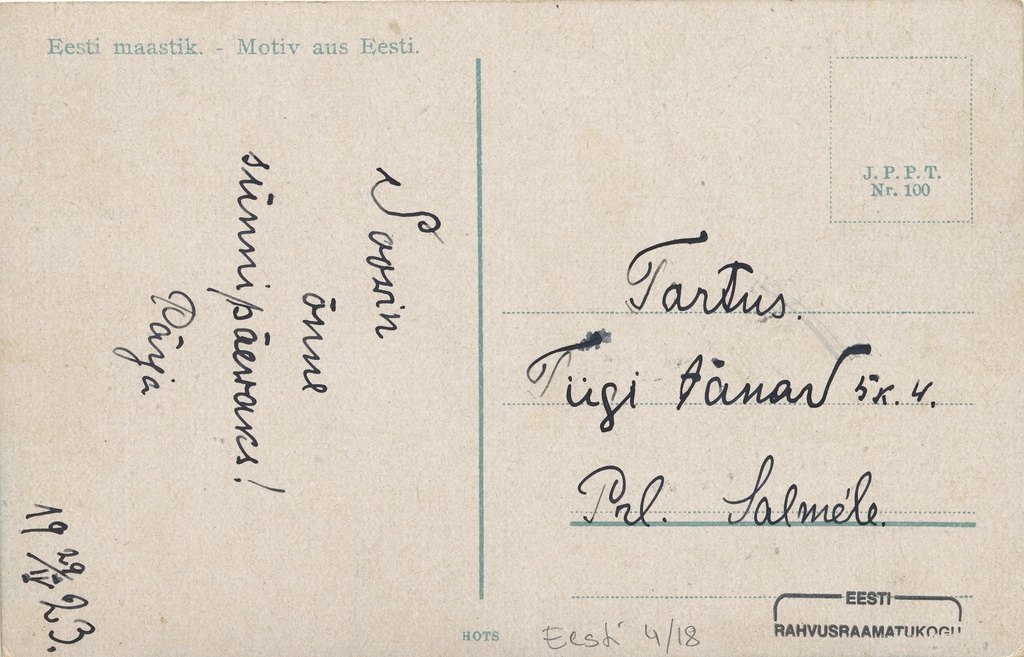 Eesti maastik. - Motiv aus Eesti.
Soowin
õnne
sünnipäewaks!
19 29/IV 23.
J. P. P. T.
Nr. 100
Tartus.
Tiigi tänav 5 k. 4.
Prl. Salméle.
HOTS
Eesti 4/18
EESTI
RAHVUSRAAMATUKOGU